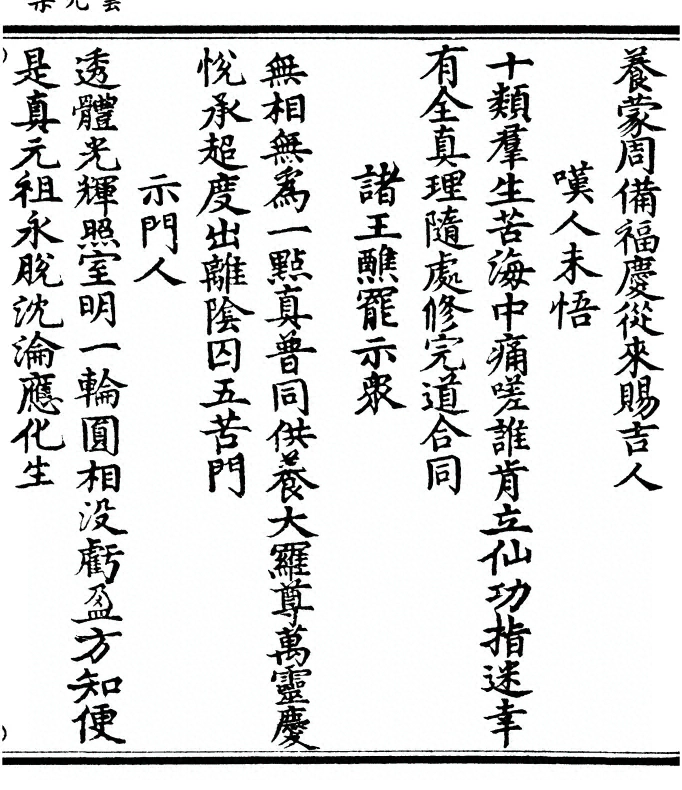 養蒙周備福慶從來賜吉人
嘆人未悟
十類羣生苦海中痛嗟誰肯立仙功指迷幸
有全真理隨處修完道合同
諸王醮罷示衆
無相無為一點真普同供養大羅尊萬靈慶
悅承超度出離陰囚五苦門
示門人
透體光輝照室明一輪圓相没虧盈方知便
是真元祖永脫沈淪應化生